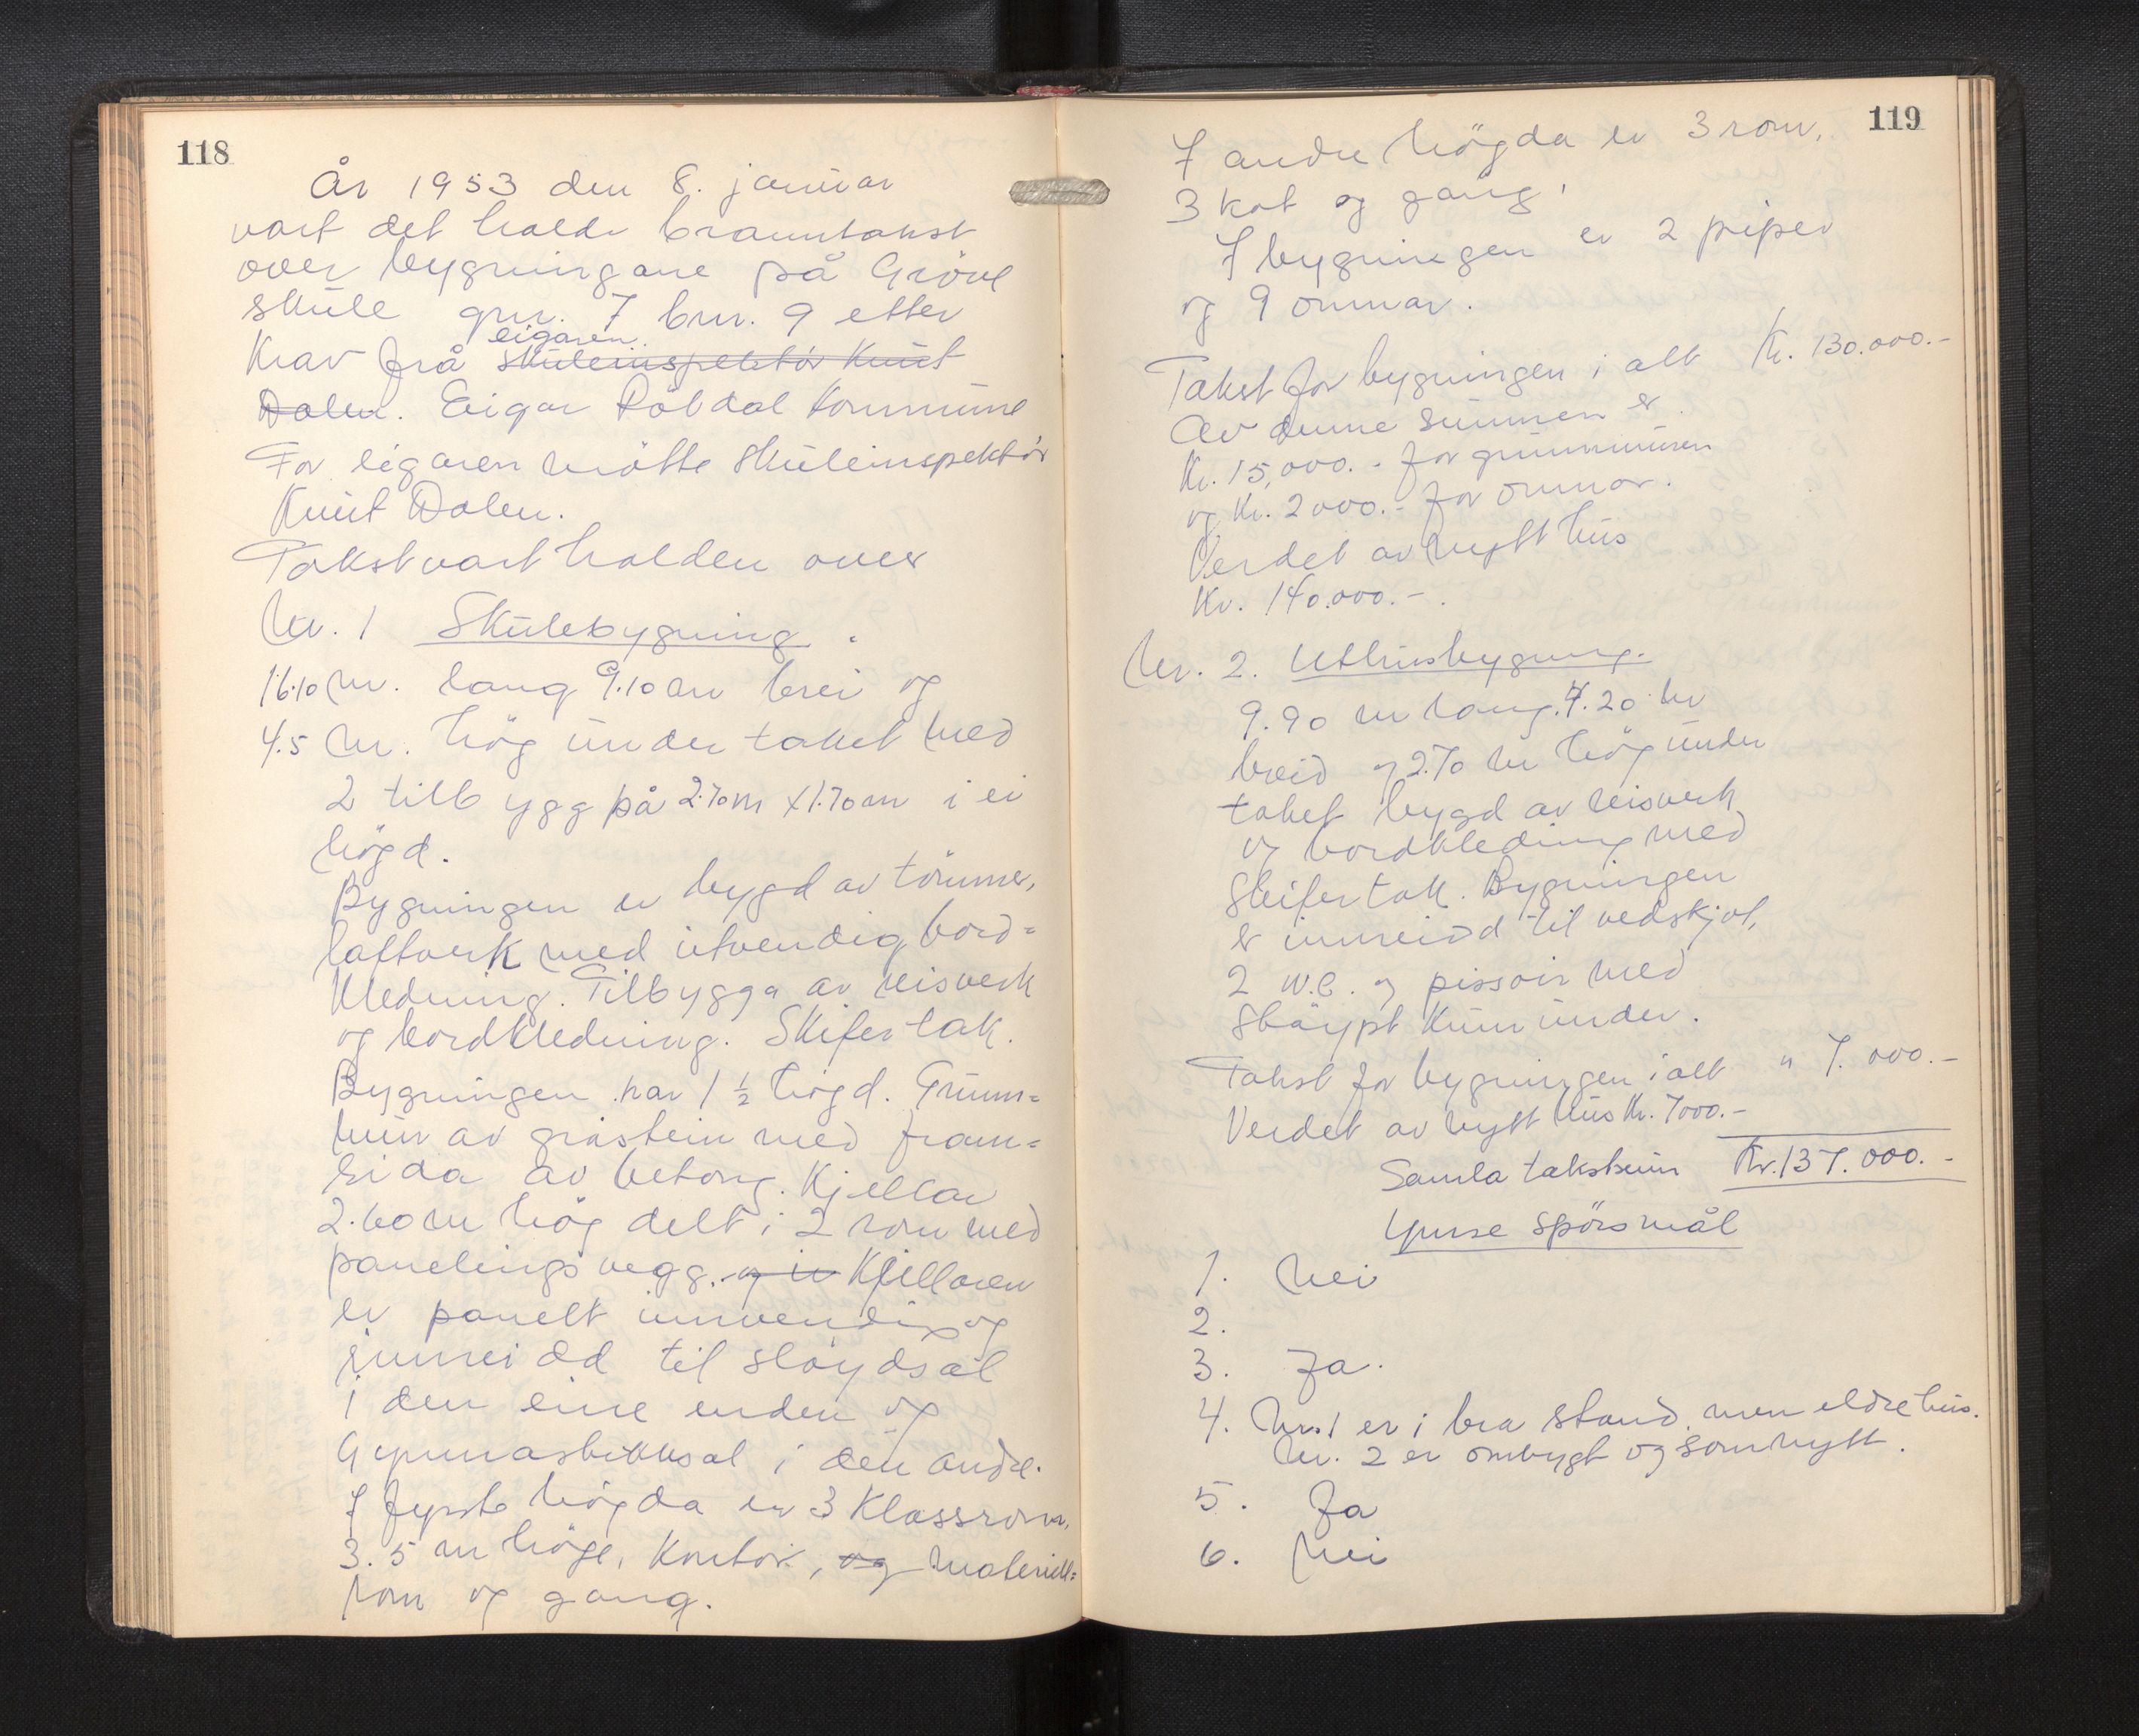 118
År 1953 den 8. januar
vart det halde branntakst
over bygningane på Gröve
skule gnr. 7 bnr. 9 etter
eigaren
Krav frå skuleinspektör Knut
Dalen. Eigar kommune
For eigaren mötte Skuleinspektör
Knut Dalen.
Takst vart halden over
Nr. 1 Skulebygning.
16.10 m. lang 9.10 m brei og
4.5 m. hög under taket med
2 tilbygg på 2.70 m x 1.70 m i ei
högd.
Bygningen er bygd av tömmer,
laftverk med utvendig bord=
kledning. Tilbygga av reisverk
og bordkledning. Skifertak.
Bygningen har 1 ½ högd. Grunn=
mur av gråstein med fram=
sida av betong. Kjellar
2.60 m hög delt i 2 rom med
panelingsvegg. og er Kjellaren
er panelt innvendig og
innreidd til slöydsal
i den eine enden og
Gymnastikksal i den andre.
I fyrste högda er 3 Klassrom,
3.5 m höge, Kontor, og materiell=
rom og gang.
119
I andre högda er 3 rom,
3 kot og gang.
I bygningen er 2 piper
og 9 omnar.
Takst for bygningen i alt Kr. 130.000.-
Av denne summen er
Kr. 15,000.- for grunnmuren
og Kr. 2000.- for omnar.
Verdet av nytt hus
Kr. 140.000.-.
Nr. 2. Uthusbygning.
9.90 m lang. 4.20 m
breid og 2.70 m hög under
taket bygd av reisverk
og bordkledning med
Skifertak. Bygningen
er innreidd til vedskjol,
2 W.C. og pissoir med
Stöypt Kum under.
Takst for bygningen i alt " 7.000.-
Verdet av nytt hus Kr. 7000.-
Samla takstsum Kr. 137.000.-
Ymse spörsmål
1. Nei
2.
3. Ja.
4. Nr. 1 er i bra stand. men eldre hus.
Nr. 2 er ombygt og som nytt.
5. Ja
6. Nei